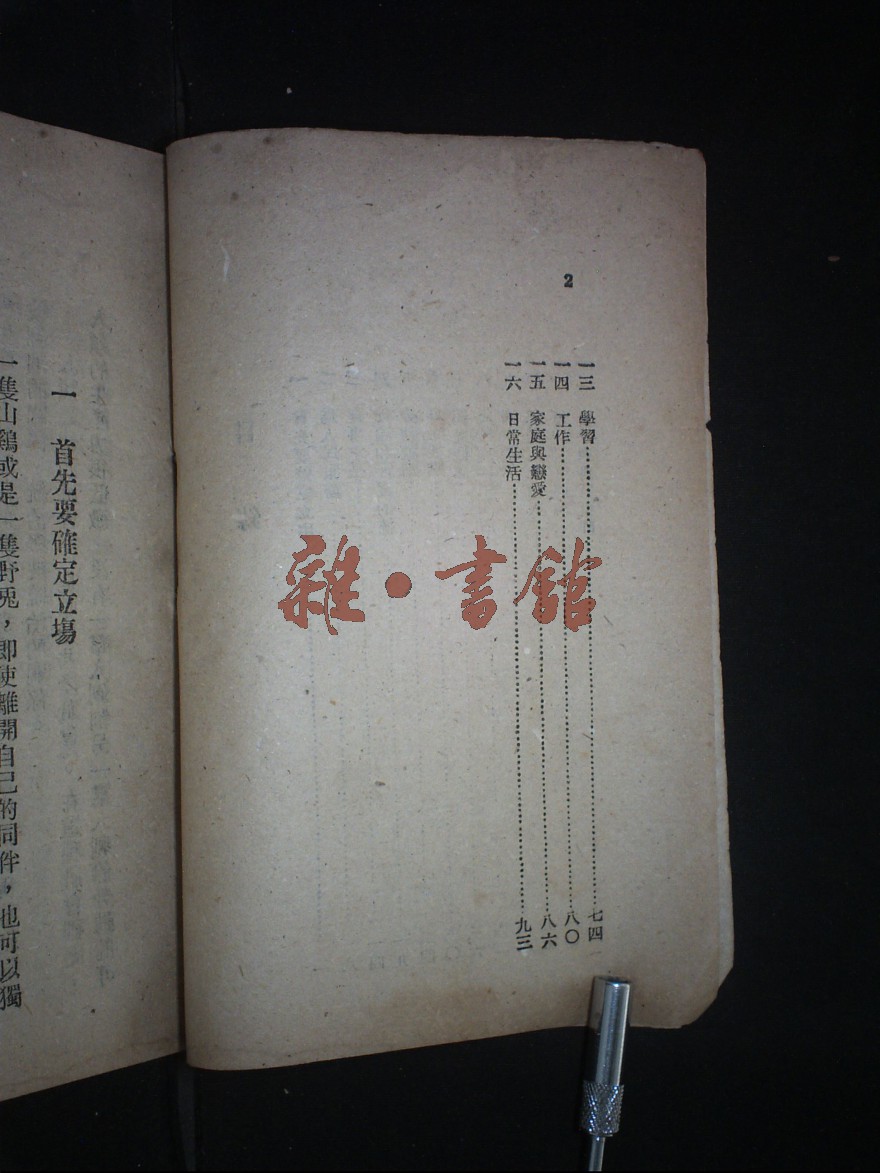 2
一三　學習……七四
一四　工作……八〇
一五　家庭與戀愛……八六
一六　日常生活……九三
雜·書館
一　首先要確定立場
一隻山鷄或是一隻野兎，卽使離開自己的同伴，也可以獨